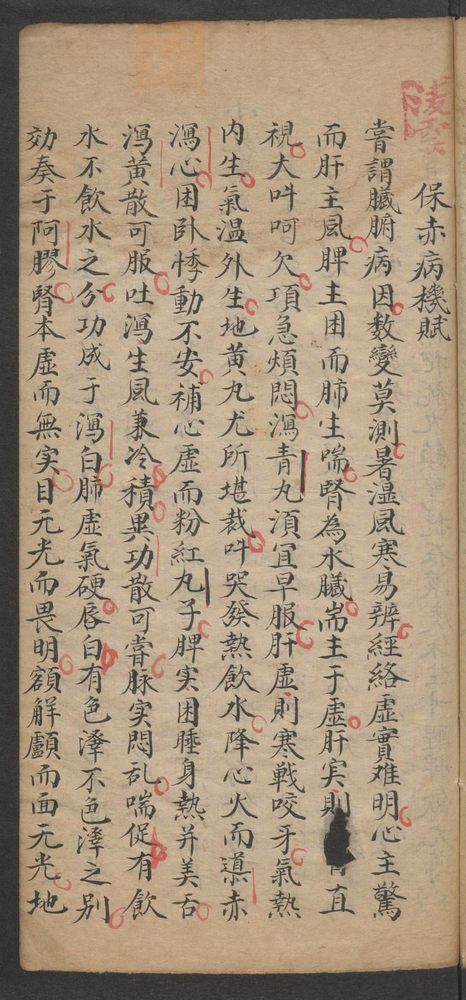 保赤病機賦
嘗謂臟腑病因数變莫測暑湿風寒易辨經絡虛實难明心主驚
而肝主風脾主困而肺主喘腎為水臟耑主于虛肝实則直
視大呌呵欠項急煩悶瀉青丸湏宜早服肝虛則寒戰咬牙氣熱
内生氣温外生地黄丸尤所堪裁呌哭發熱飲水降心火而導赤
瀉心困卧悸動不安補心虛而粉紅丸子脾实困睡身熱并美舌
瀉黄散可服吐瀉生風兼冷積異功散可嘗脉实悶乱喘促有飲
水不飲水之分功成于瀉白肺虛氣硬唇白有色澤不色澤之别
効奏于阿膠腎本虛而無实目无光而畏明額解顱而面无光地